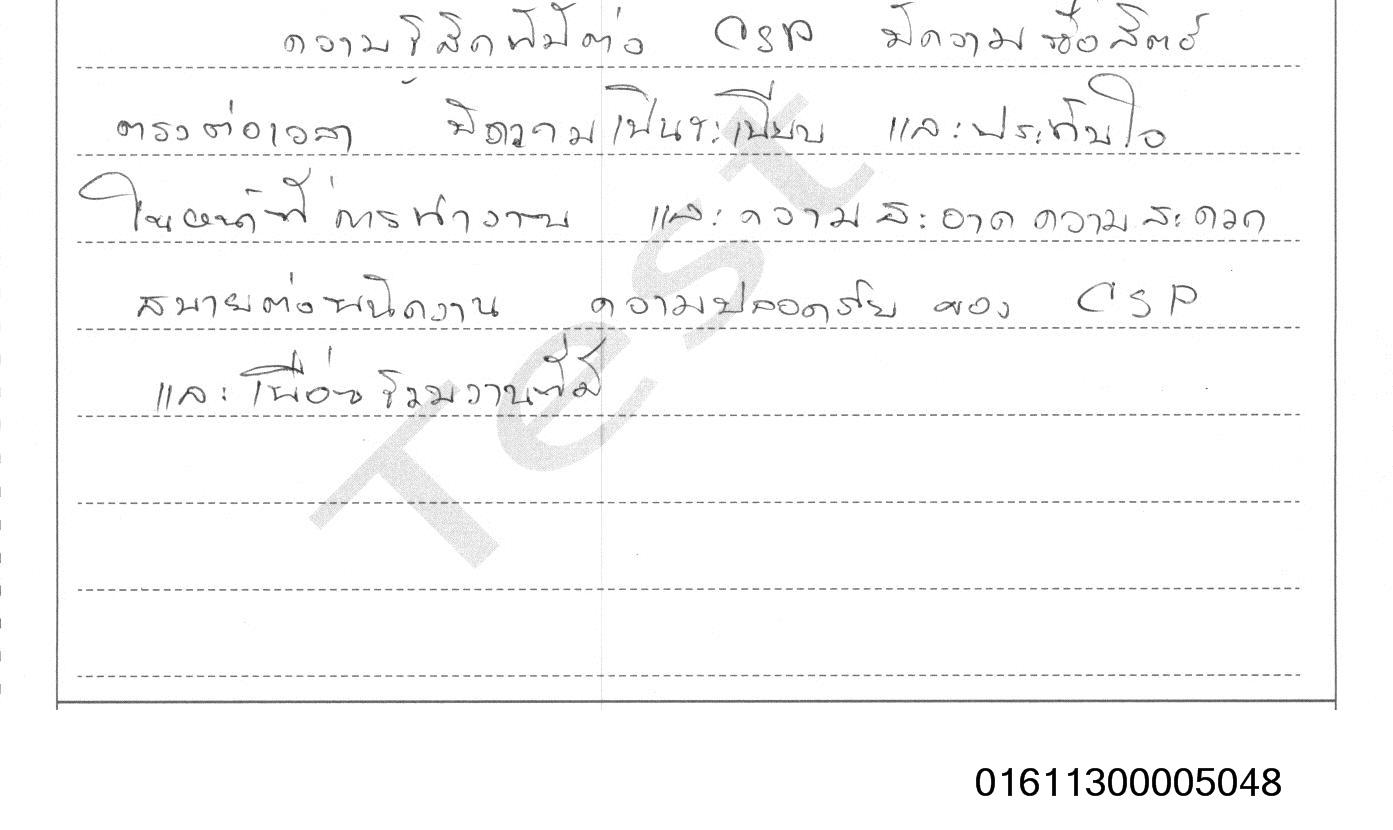 ความรู้สึกที่มีต่อ CSP มีความซื่อสัตย์
ตรงต่อเวลา มีความเป็นระเบียบ และประทับใจ
ในหน้าที่การทำงาน และความสะอาดความสะดวก
สบายต่อพนักงาน ความปลอดภัย ของ CSP
และเพื่อนร่วมงานที่ดี
Test
01611300005048